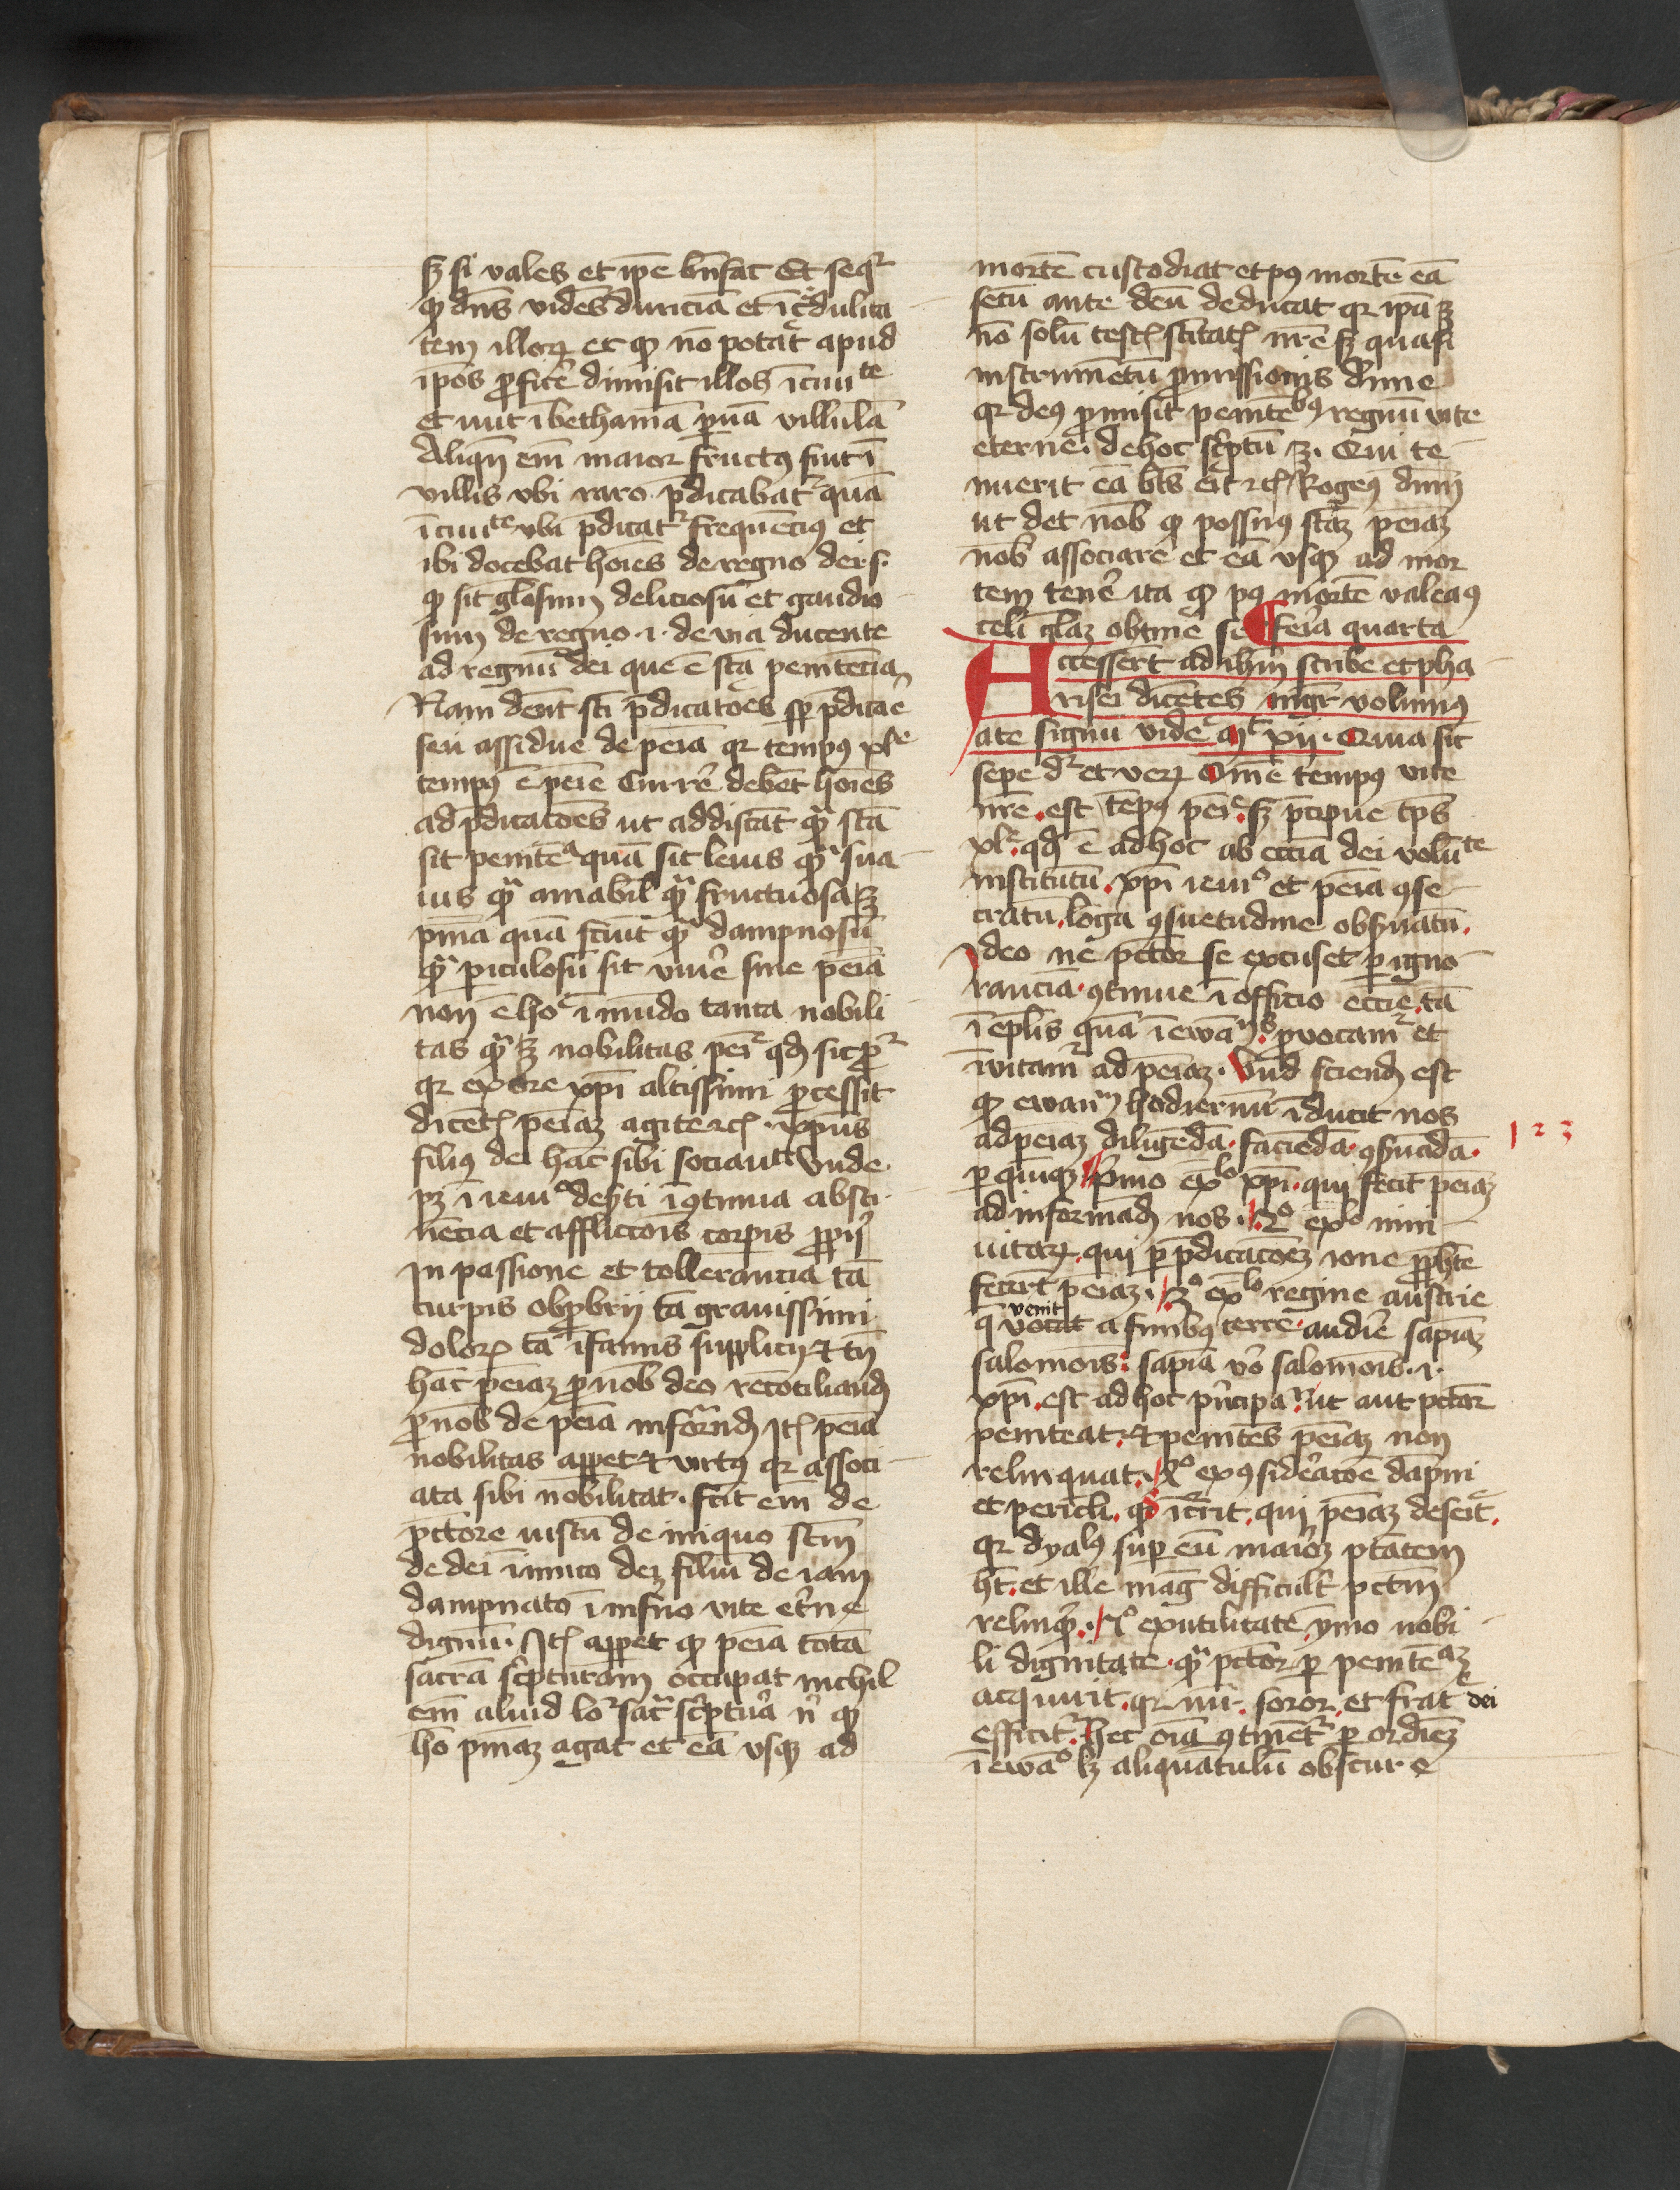 sꝫ si vales et ip̄e bn̄fac Et seqr̄
qꝫ dn̄s vidēs duriciā et īcͤdulita
tem illoꝝ et qꝫ nō potat̄ apud
ip̄os ꝓficē dimisit illos ī ciuite
et iuit ī bethaniā ꝑuā villulā
Aliqn̄ em̄ maior fructꝰ fiūt ī
villis vbi raro p̄dicabat̄ quā
ī ciuite vbi p̄dicat̄ frequēciꝰ et
ibi docebat hoīes de regno dei .s.
qꝫ sit gl̄osum deliciosū et gaudio
sum de regno .i. de via ducente
ad regnū dei que ē stā penitēcia
Nam debēt sc̄i p̄dicatōes sꝑ p̄dicāe
seu assidue de pēia qꝛ tempꝰ xle
tempꝰ ē pēie Currē debēt hoīes
ad p̄dicatōes ut addiscāt qͣ sc̄ā
sit penitēa quā sit leuis qͣ sua
uis qͣ amabil̄ qͣ fructuosa ꝫ
pn̄ia quā sciūt qͣ dampnosū
qͣ piculosū sit viuē sine pēia
non ē hoc ī mūdo tanta nobili
tas qͣ ꝫ nobilitas pēie qđ sic pꝛ
qꝛ ex ore xp̄i altissimi ꝓcessit
dicēt̄ pēiaꝫ agite ⁊c̄ . xp̄us
filiꝰ dei hāc sibi sociauit Vnde
pꝫ ī ieiuo deſti ī ꝯtinua absti
nēcia et afflictōis corꝑis ꝓpij
In passione et tollerancia tā
turpis obꝓbrij tā grauissimi
doloꝝ tā īfamis supplicij ⁊ tn̄
hāc pēiaꝫ ꝑ nob̄ deo recōciliand̄
ꝑ nob̄ de pēia informnd̄ Itē pēia
nobilitas apꝑet ⁊ virtꝰ qꝛ associ
ata sibi nobilitat . fcit em̄ de
pctore iustū de iniquo scm̄
de dei inimico dei filiū de iam
dampnato ī inferno vite et̄ne
dignū . Itē apꝑet qꝫ pēia totā
sacrā scͥpturam occupat nichil
em̄ aliud loꝛ sac̄ scͥptura n̄ qꝫ
hō pn̄iaꝫ agat et eā vsqꝫ ad
mortē custodiat et pꝰ mortē eā
secū ante deū deducat qꝛ ip̄a ꝫ
nō solū testꝭ scītatꝭ nr̄e sꝫ quasi
instrumētū ꝓmissionis diuine
qꝛ deꝰ ꝓmisit penitētibꝰ regnū vite
eterne . de hoc scͥptū ꝫ . Qui te
nuerit eā bt̄s erit ⁊c̄ Rogeꝰ dn̄m
ut det nob̄ qꝫ possimꝰ scāꝫ pēiaꝫ
nob̄ associare et eā vsqꝫ ad mor
tem tenē ita qꝫ pꝰ mortē valeaꝰ
celi gl̄aꝫ obtinē fe ¶ feīa quarta
Accesserūt ad ihm̄ scribe et pha
risei dicētes mgr̄ volumꝰ
a te signū vidē Mͭ xij . Quia sic
sepe dꝛ et veꝝ Om̄e tempꝰ vite
nr̄e . est tēpꝰ pēie . sꝫ p̄cipue tp̄s
xle . qđ ē ad hoc ab eccīa dei volūte
institutū . xp̄i ieiuo et pēia ꝯse
cratū . lōga ꝯsuetudine obſuatū .
Ideo ne pctor se excuset ꝑ igno
rancia . ꝯtinue ī officio ecc̄ie . tā
ī ep̄lis quā ī ewāijs . ꝓuocamꝛ et
īuitamꝛ ad pēiaꝫ . Vnd̄ sciend̄ est
qꝫ ewāīm hodiernū īducit nos
ad pēiaꝫ diligēdā . faciēdā . ꝯſuādā .
1 2 3
ꝑ quīqꝫ ¶ Pͥmo exlo xp̄i . qui fecit pēiaꝫ
ad informand̄ nos . 2o exo nini
uitaꝝ . qui ꝑ p̄dicatōeꝫ ione ꝓphe
fecert̄ pēiaꝫ . 3o exlo regine austrie
q̄ venit a finibꝰ terre . audīe sapīaꝫ
salomōis : sapīa vo salomōis . i .
xp̄i . est ad hoc pͥncipa . ut aut pctor
peniteat . ⁊ penitēs pēiaꝫ non
relinquat . 4o ex ꝯsideratōe dāpni
et pericli . qđ īcurrit . qui pēiaꝫ deserit .
qꝛ dyabꝰ suꝑ eū maiorꝫ ptātem
ht̄ . et ille mag difficultr pctm̄
relinqͥ . 5o ex utilitate ymo nobi
li dignitate . qͣ pctor ꝑ penitēaꝫ
acquirit . qꝛ mr̄ . soror . et frater dei
efficit̄ . hec oīa ꝯtinētꝛ ꝑ ordiēꝫ
ī ewāo lꝫ aliquātulū obscure